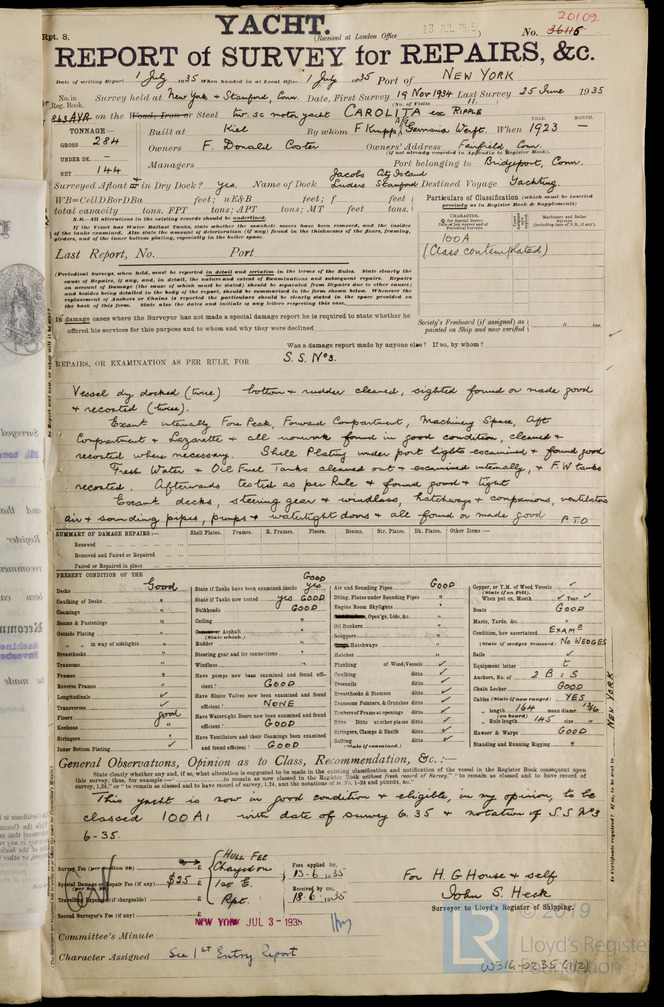 YACHT.
Rpt. 8.
(Received at London Office 13 JUL 1935
20102
No. 36116
REPORT of SURVEY for REPAIRS, &c.
Date of writing Report 1 July 1935 When handed in at Local Office 1 July 1935 Port of NEW YORK
No. in Reg. Book.
Survey held at New York & Stamford, Conn. Date, First Survey 19 Nov 1934 Last Survey 25 June 1935
(No. of Visits 11.)
on the Wood, Iron or Steel tw. sc motor yacht CAROLITA ex RIPPLE
TONNAGE:—
GROSS 284
UNDER DK. —
NET 144
Built at Kiel By whom F Krupp A/G Germania Werft. When 1923
YEAR. MONTH.
Owners F. Donald Coster Owners' Address Fairfield Conn.
(If not already recorded in Appendix to Register Book).
Managers Port belonging to Bridgeport, Conn.
Surveyed Afloat or in Dry Dock? yes. Name of Dock Jacobs City Island Luders Stamford Destined Voyage Yachting.
WB=CellDBorDBa feet; uE&B feet; f feet
total capacity tons. FPT tons; APT tons; MT feet tons.
N.B.—All alterations in the existing records should be underlined.
If the Vessel has Water Ballast Tanks, state whether the manhole covers have been removed, and the insides of the tanks examined. Also state the amount of deterioration (if any) found in the thicknesses of the floors, framing, girders, and of the inner bottom plating, especially in the boiler space.
Particulars of Classification (which must be inserted precisely as in Register Book & Supplements)
100A
(Class contemplated)
Last Report, No. Port
(Periodical Surveys, when held, must be reported in detail and seriatim in the terms of the Rules. State clearly the cause of Repairs, if any, and, in detail, the nature and extent of Examinations and subsequent repairs. Repairs on account of Damage (the cause of which must be stated) should be separated from Repairs due to other causes; and besides being detailed in the body of the report, should be summarised in the form shown below. Whenever the replacement of Anchors or Chains is reported the particulars should be clearly stated in the space provided on the back of this form. State also the dates and initials of any letters respecting this case.
In damage cases where the Surveyor has not made a special damage report he is required to state whether he offered his services for this purpose and to whom and why they were declined
Society's Freeboard (if assigned) as painted on Ship and now verified ft. ins.
Was a damage report made by anyone else? If so, by whom?
REPAIRS, OR EXAMINATION AS PER RULE, FOR S.S. No3.
Vessel dry docked (twice) bottom & rudder cleaned, sighted found or made good
& recoated (twice).
Examt internally Fore Peak, Forward Compartment, Machinery Space, Aft
Compartment & Lazarette & all ironwork found in good condition, cleaned &
recoated where necessary. Shell Plating under port lights examined & found good
Fresh Water & Oil Fuel Tanks cleaned out & examined internally, & F.W tanks
recoated. Afterwards tested as per Rule & found good & tight
Examt decks, steering gear & windlass, hatchways & companions, ventilators
air & sounding pipes, pumps & watertight doors & all found or made good P.T.O
SUMMARY OF DAMAGE REPAIRS:— Shell Plates. Frames. R. Frames. Floors. Beams. Str. Plates. Dk. Plates. Other Items:—
Renewed
Removed and Faired or Repaired
Faired or Repaired in place
PRESENT CONDITION OF THE
Decks Good
Caulking of Decks "
Coamings "
Beams & Fastenings "
Outside Plating "
" " in way of sidelights "
Breasthooks "
Transoms "
Frames "
Reverse Frames "
Longitudinals ✓
Transverses ✓
Floors good
Keelsons "
Stringers "
Inner Bottom Plating ✓
State if Tanks have been examined inside GOOD yes
State if Tanks now tested yes GOOD
Bulkheads GOOD
Ceiling "
Cement or Asphalt "
(State which.)
Rudder "
Steering gear and its connections "
Windlass "
Have pumps now been examined and found efficient? GOOD
Have Sluice Valves now been examined and found efficient? NONE
Have Watertight Doors now been examined and found efficient? GOOD
Have Ventilators and their Coamings been examined and found efficient? GOOD
Air and Sounding Pipes GOOD
Dblng. Plates under Sounding Pipes "
Engine Room Skylights "
Open'gs, Lids, &c. "
Oil Bunkers "
Scuppers "
Hatchways "
Hatches "
Planking of Wood Vessels ✓
Caulking ditto ✓
Treenails ditto ✓
Breasthooks & Stemson ditto ✓
Transoms Pointers, & Crutches ditto ✓
Timbers of Frame at openings ditto ✓
Ditto Ditto at other places ditto ✓
Stringers, Clamps & Shelfs ditto ✓
Salting ditto ✓
(State if examined.)
Copper, or Y.M. of Wood Vessels ✓
(State if on Felt).
When put on, Month ✓ Year ✓
Boats GOOD
Masts, Yards, &c. "
Condition, how ascertained EXAMD
(State if wedges removed) No WEDGES
Sails ✓
Equipment letter t
Anchors, No. of 2 B 1 S
Chain Locker GOOD
Cables (State if now ranged) YES
" length 164 mean diamr. 13/16
(on board)
" Rule length 145 size "
Hawser & Warps GOOD
Standing and Running Rigging "
NEW YORK
General Observations, Opinion as to Class, Recommendation, &c. :—
State clearly whether any, and if so, what alteration is suggested to be made in the existing classification and notification of the vessel in the Register Book consequent upon
This yacht is now in good condition & eligible, in my opinion, to be
classed 100A1 with date of survey 6.35 & notation of S.S No3
6-35.
Survey Fee (per Section 29) £
Special Damage or Repair Fee (if any) $25 £
(per Sec. 29)
Travelling Expenses (if chargeable) £
Second Surveyor's Fee (if any) £
HULL FEE
Charged on
1st E.
Rpt.
Fees applied for,
13.6.1935
Received by me,
18.6.1935
For H. G House & self
John S. Heck
Surveyor to Lloyd's Register of Shipping.
NEW YORK JUL 3 - 1935
Committee's Minute
Character Assigned See 1st Entry Report
© 2019
LR
Lloyd's Register
Foundation
W316-0235 (1/2)